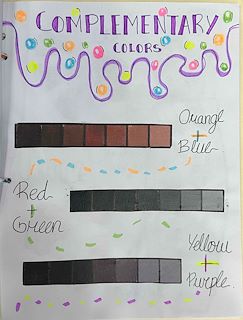 COMPLEMENTARY
COLORS
Orange
+
Blue
Red
+
Green
Yellow
+
Purple